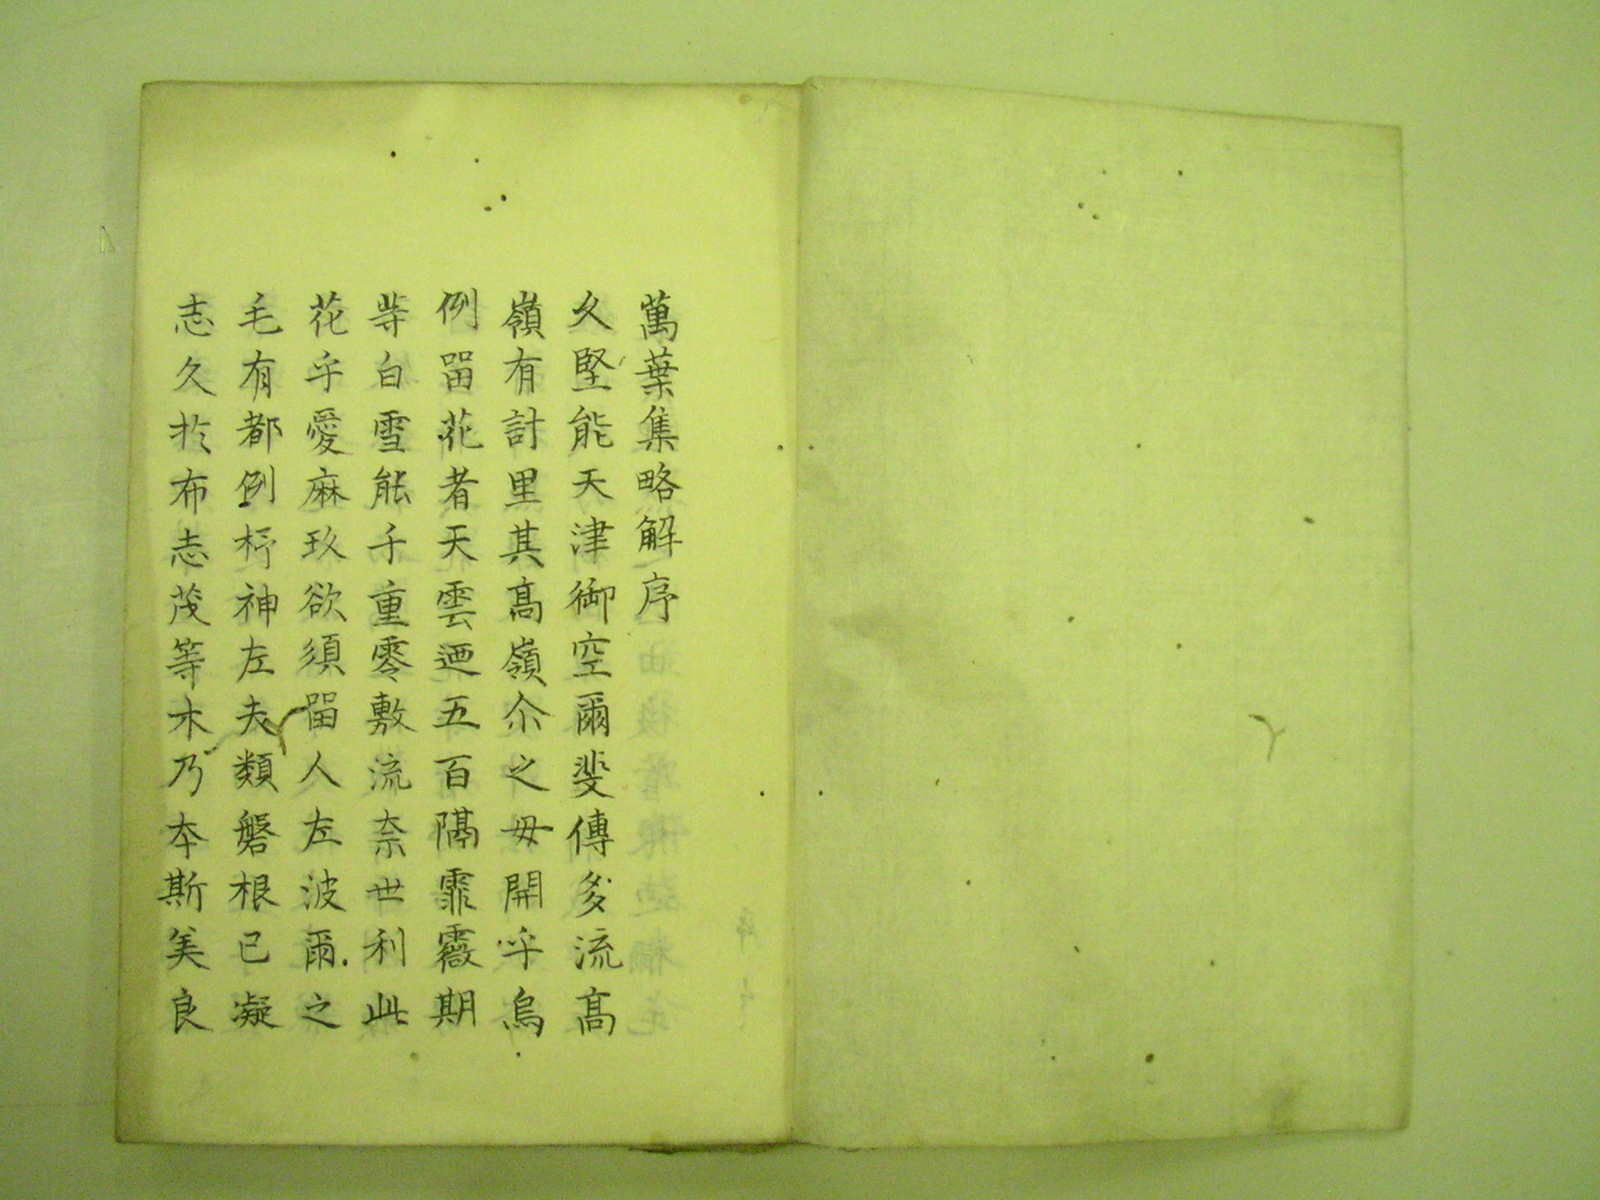 萬葉集略解序
久堅能天津御空爾斐傳多流高
嶺有計里其高嶺尒之毋開乎烏
例㽞花者天雲迺五百隔霏霰期
等白雪能千重零敷流奈世利此
花乎愛麻玖欲須㽞人左波爾之
毛有都例杼神左夫類磐根已凝
志久於布志茂等木乃本斯美良